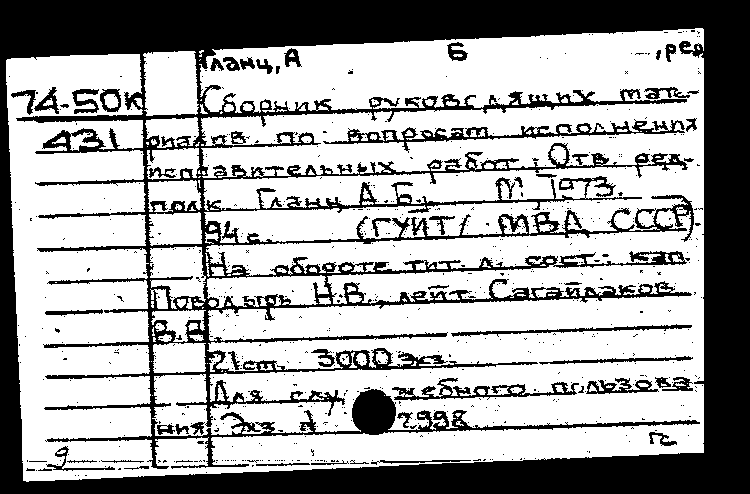 Гланц, А Б , ред
74-50к Сборник руководящих мате-
431 риалов по вопросам исполнения
исправительных работ. Отв. ред.-
полк Гланц А.Б., М, 1973.
94 с. (ГУИТ/ МВД СССР).
На обороте тит. л. сост.: кап
Поводырь Н.В., лейт. Сагайдаков
В.В.
21 см. 3000 экз.
Для служебного пользова-
ния. Экз. № 2998
9